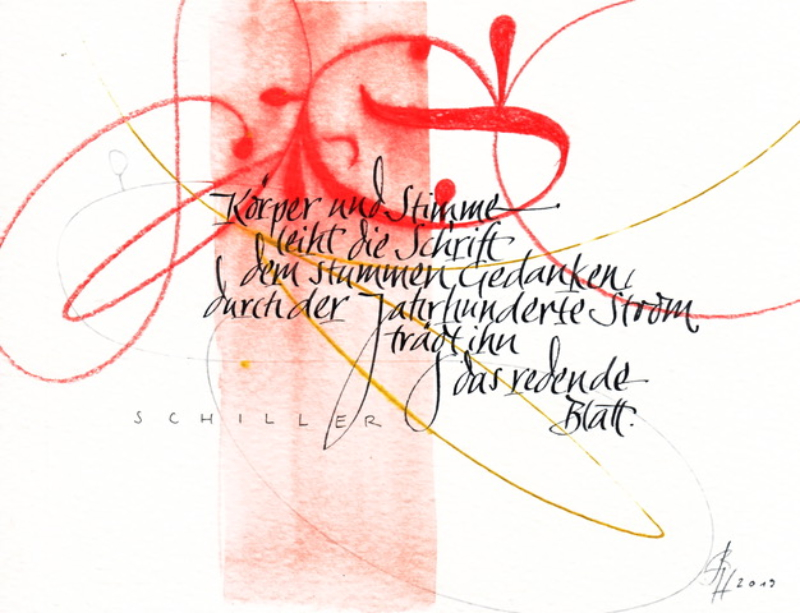 Körper und Stimme
leiht die Schrift
dem stummen Gedanken,
durch der Jahrhunderte Strom
trägt ihn
das redende
Blatt.
SCHILLER
2019